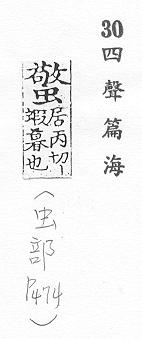 30四聲篇海
蟼
居丙切
蝦暮也
(虫部P474)